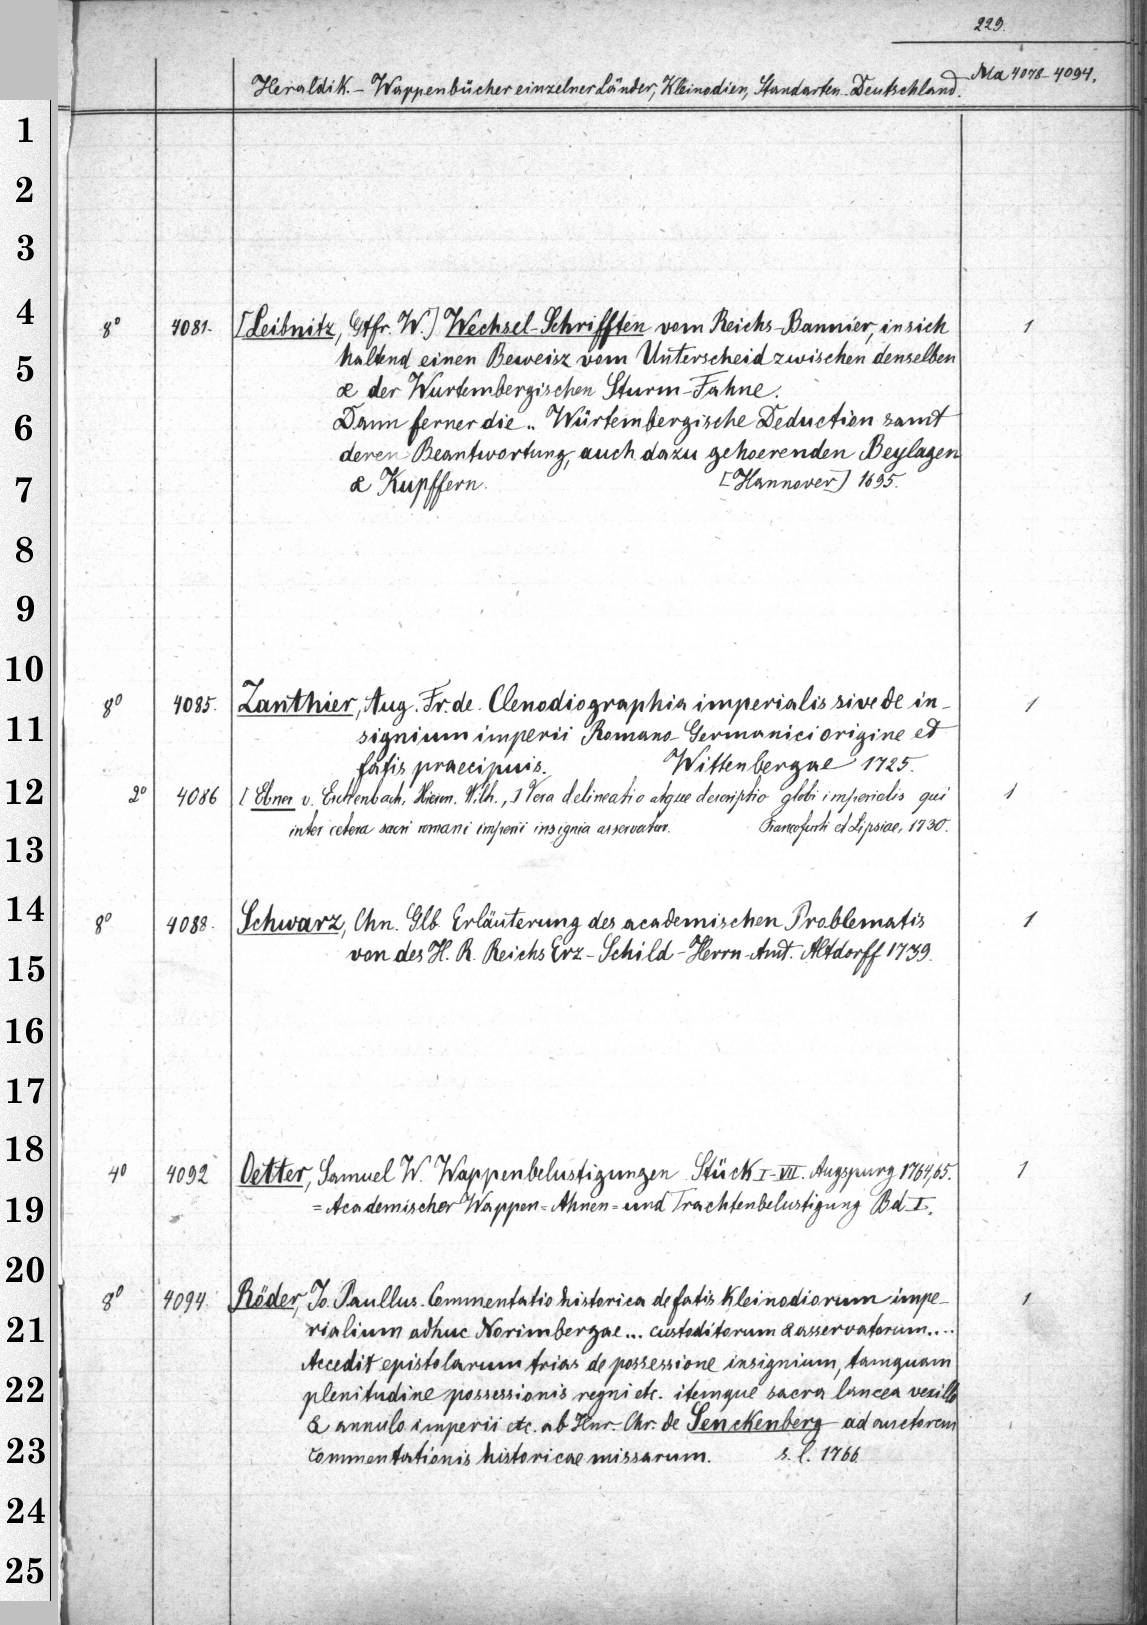 229.
Heraldik. - Wappenbücher einzelner Länder, Kleinodien, Standarten. Deutschland. Ma 4078-4094.
1
2
3
4
8° 4081. [Leibnitz, Gtfr. W.] Wechsel-Schrifften vom Reichs-Bannier, in sich 1
haltend einen Beweisz vom Unterscheid zwischen denselben
5
& der Wurtembergischen Sturm-Fahne.
6
Dann ferner die .. Würtembergische Deduction samt
deren Beantwortung, auch dazu gehoerenden Beylagen
7
& Kupffern. [Hannover] 1695.
8
9
10
8° 4085. Zanthier, Aug. Fr. de. Clenodiographia imperialis sive de in- 1
11
signium imperii Romano-Germanici origine et
fatis praecipuis. Wittenbergae 1725.
12
2° 4086 [Ebner v. Eschenbach, Hieron. Wilh.,] Vera delineatio atque descriptio globi imperialis qui 1
inter cetera sacri romani imperii insignia asservatur. Francofurti et Lipsiae, 1730.
13
14
8° 4088. Schwarz, Chn. Glb. Erläuterung des academischen Problematis 1
von des H. R. Reichs Erz-Schild-Herrn-Amt. Altdorff 1739.
15
16
17
18
4° 4092 Oetter, Samuel W. Wappenbelustigungen Stück I-VII. Augspurg 1764,65. 1
19
= Academischer Wappen= Ahnen= und Trachtenbelustigung Bd I.
20
8° 4094. Röder, Jo. Paullus. Commentatio historica de fatis Kleinodiorum impe- 1
21
rialium adhuc Norimbergae ... custoditorum & asservatorum....
Accedit epistolarum trias de possessione insignium, tamquam
22
plenitudine possessionis regni etc. itemque sacra lancea vexillo
& annulo imperii etc. ab Hnr. Chr. de Senckenberg ad auctorem
23
commentationis historicae missarum. s. l. 1766
24
25